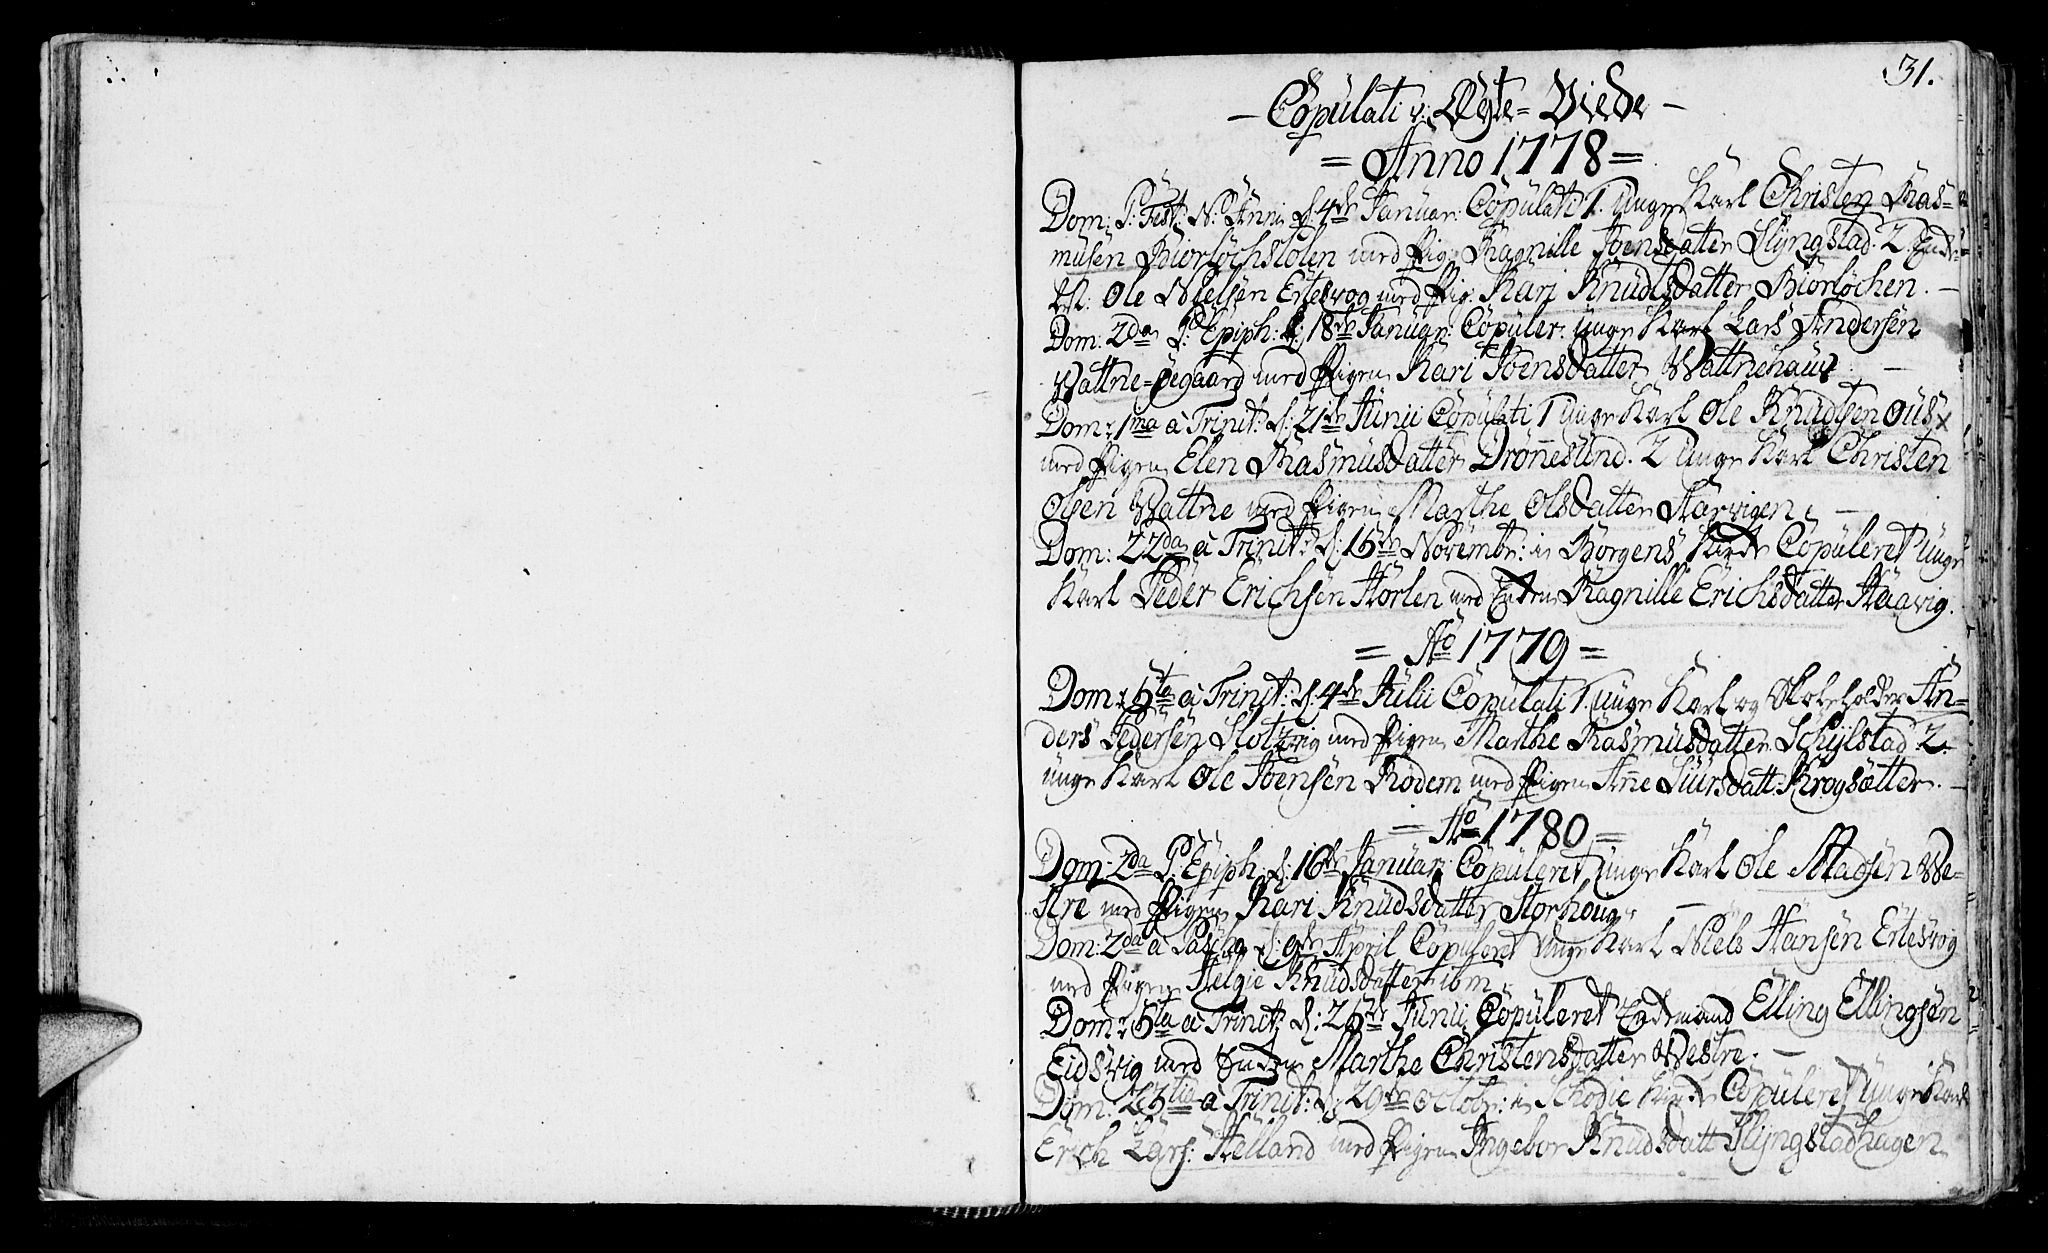 31.
- Copulati v: Ægte-Viede -
= Anno 1778 =
Dom: P: Fest: N: Anni d: 4de Januar: Copulati 1. unge Karl Christen Ras=
musen Biorlochstolen med Pig: Ragnille Joensdatter Slyngstad. 2. Enk=
kst: Ole Nielsen Ertesvog med Pig: Kari Knudtsdatter Biorlochen. -
Dom: 2da P: Epiph: d: 18de Januar: Copuler: unge Karl Lars Andersen
Vattne-Øegaard med Pigen Kari Joensdatter Vattnehaug -
Dom: 1ma à Trinit: d: 21de Junii Copulati 1 unge Karl Ole Knudtsen Ous
med Pigen Elen Rasmusdatter Dronesund. 2 unge Karl Christen
Olsen Vattne med Pigen Marthe Olsdatter Harvigen. -
Dom: 22da à Trinit: d: 15de Novembr: in Borgens Kirke Copuleret unge
Karl Peder Erichsen Hørlen med Enken Ragnille Erichsdatter Haavig.
= Ao 1779 =
Dom: 5ta à Trinit: d: 4de Julii Copulati 1. unge Karl og Skoleholder An=
ders Pedersen Slotzvig med Pigen Marthe Rasmusdatter Schylstad 2.
unge Karl Ole Joensen Rødem med Pigen Ane Siursdatt: Krogsætter. -
= Ao 1780 =
Dom: 2da P: Epiph: d: 16de Januar: Copuleret unge Karl Ole Madsen We=
stre med Pigen Kari Knudsdatter Storhoug. -
Dom: 2da à Pascha d: 9de April Copuleret unge Karl Niels Hansen Ertesvog
med Pigen Helgie Knudsdatter ibm
Dom: 5ta à Trinit: d: 25de Junii Copuleret Enkemand Elling Ellingsen
Eidsvig med Enken Marthe Christensdatter Westre. -
Dom: 23tia à Trinit: d: 29de Octobr: in Schodie Kirke Copuleret unge Karl
Erich Lars: Helland med Pigen Ingebor Knudsdatt Slyngstadhagen